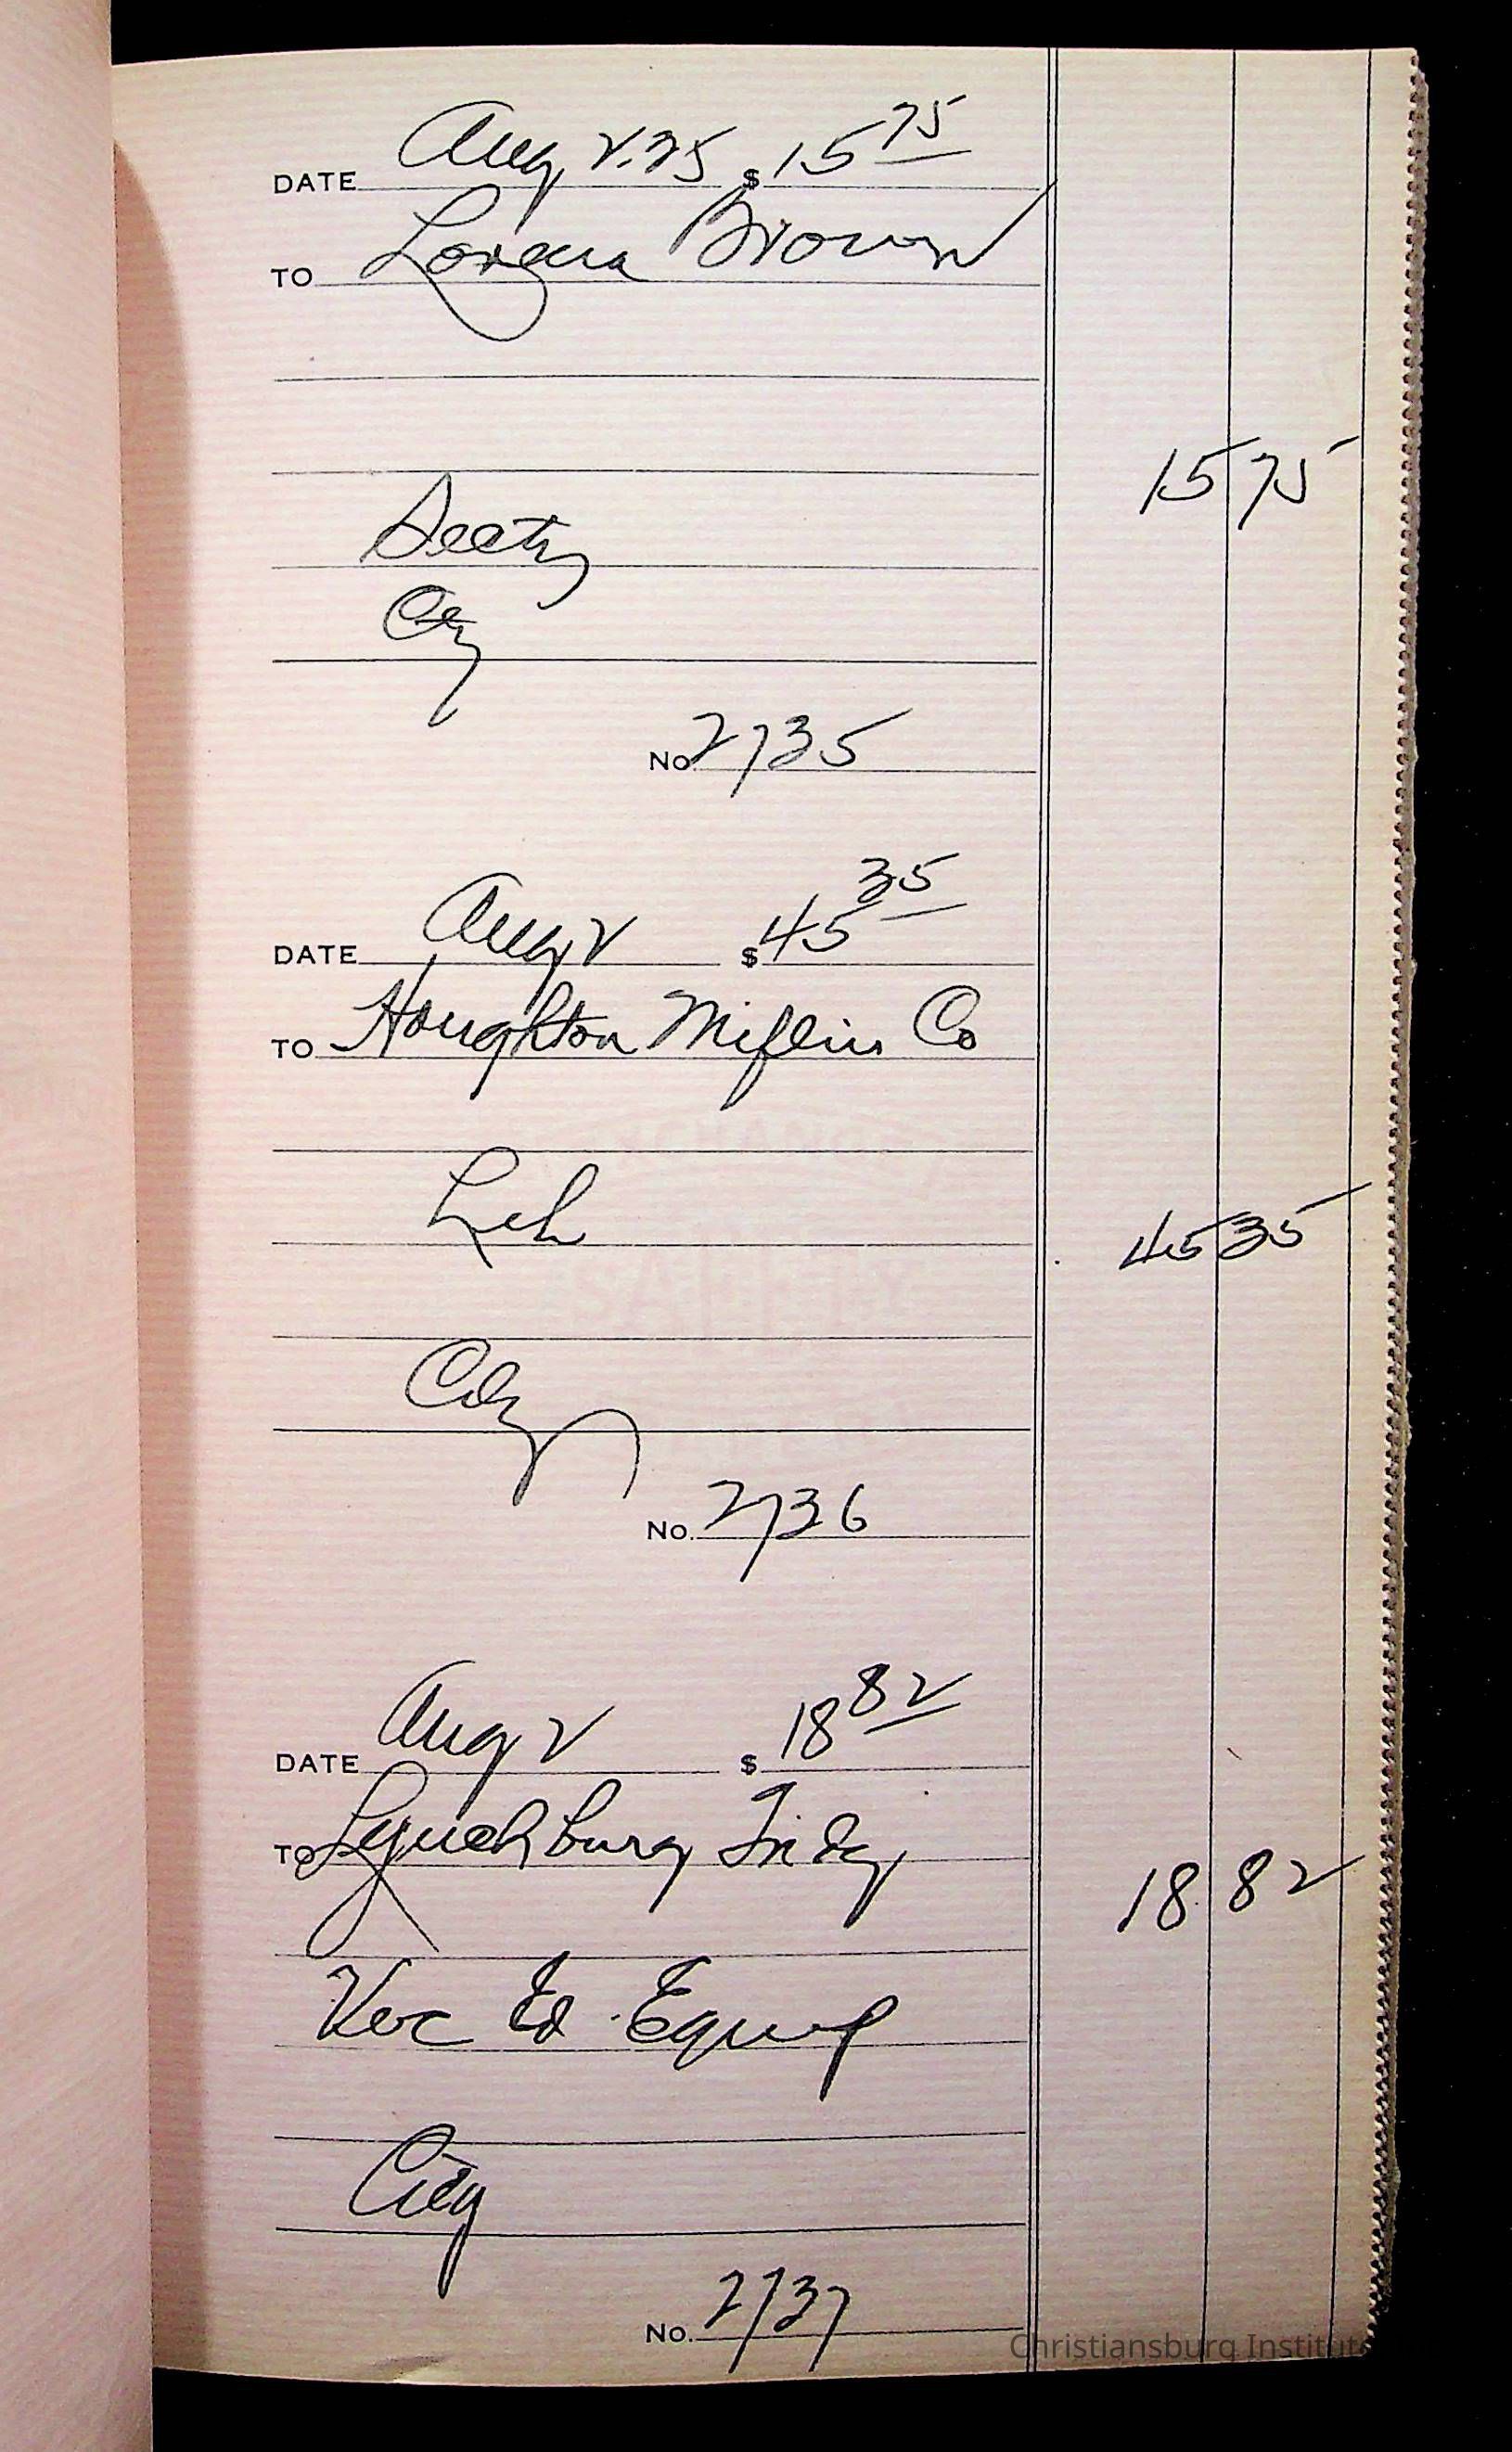 DATE Aug 2.25 $ 15 75
TO Lorena Brown
15 75
Secty
Cy
No 2735
DATE Aug 2 $ 45 35
TO Houghton Miflin Co
Lib
45 35
No. 2736
DATE Aug 2 $ 18 82
TO Lynchburg Fndy
18 82
Voc Ed. Equip
No. 2737
Christiansburg Institute